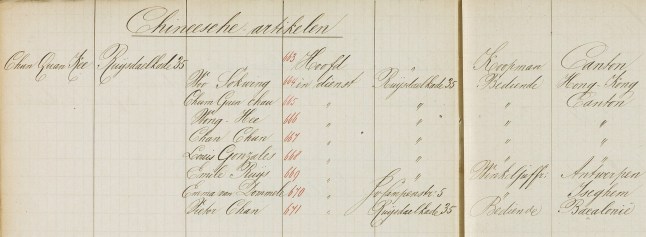 Chineesche artikelen
Chan Quan Kee Ruijsdaelkade 35 663 Hoofd Koopman Canton
Woo Sokwing 664 in dienst Ruijsdaelkade 35 Bediende Hong-Kong
Chum Gua Chau 665 " " " Canton
Wong Hee 666 " " " "
Chan Chun 667 " " " "
Louis Gonzales 668 " " " "
Emile Ruys 669 " " Winkeljuffr. Antwerpen
Emma van 670 " 5 " Iseghem
Victor Chan 671 " Ruijsdaelkade 35 Bediende